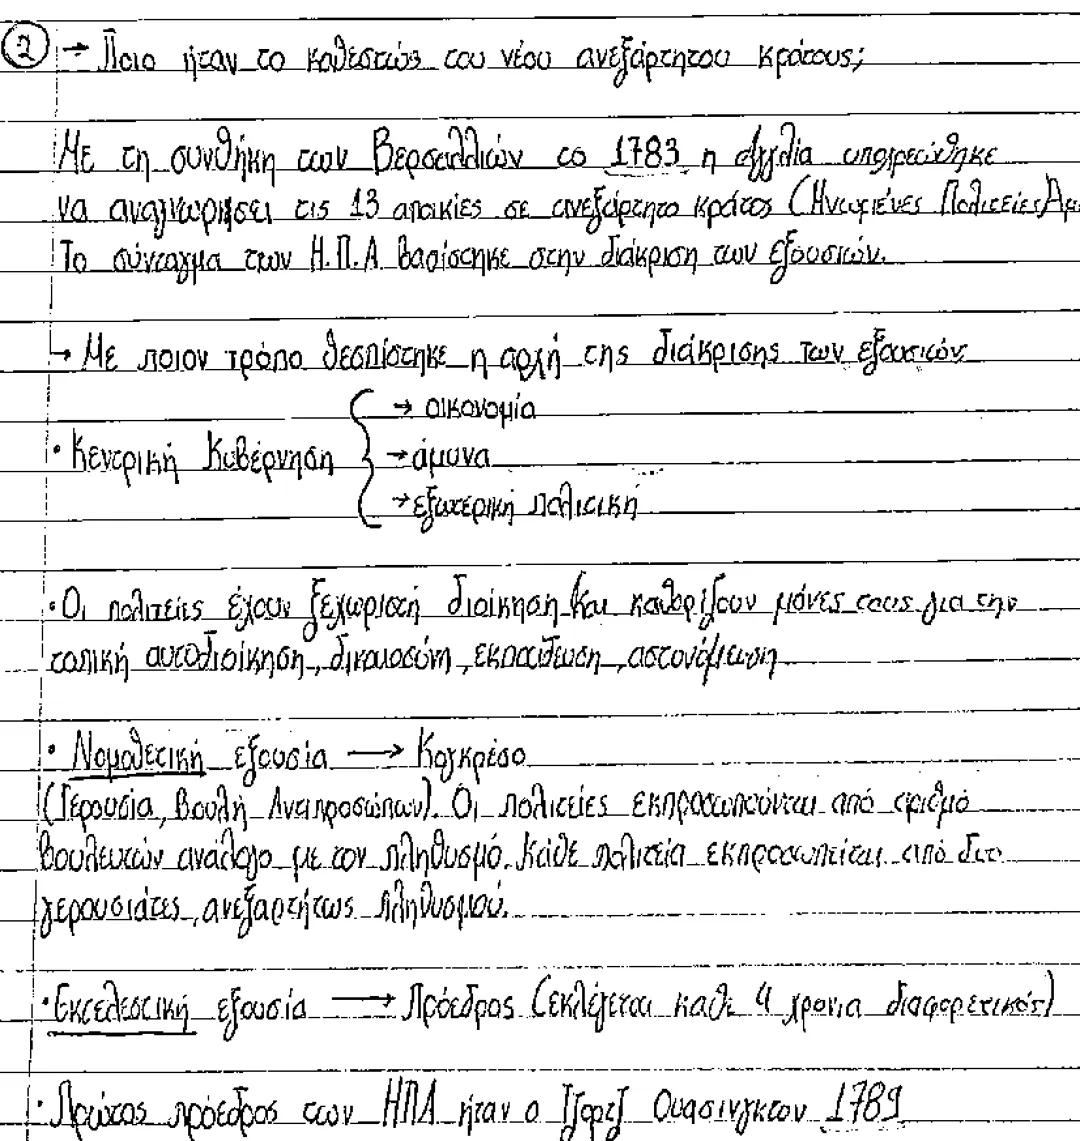 2 → Ποιο ήταν το καθεστώς του νέου ανεξάρτητου κράτους;
Με τη συνθήκη των Βερσαλλιών το 1783 η Αγγλία υποχρεώθηκε
να αναγνωρίσει τις 13 αποικίες σε ανεξάρτητο κράτος (Ηνωμένες Πολιτείες Αμ
Το σύνταγμα των Η.Π.Α βασίστηκε στην διάκριση των εξουσιών.
→ Με ποιον τρόπο θεσπίστηκε η αρχή της διάκρισης των εξουσιών
→ οικονομία
• Κεντρική Κυβέρνηση { → άμυνα
→ εξωτερική πολιτική
• Οι πολιτείες έχουν ξεχωριστή διοίκηση και καθορίζουν μόνες τους για την
τοπική αυτοδιοίκηση, δικαιοσύνη, εκπαίδευση, αστονόμευση
• Νομοθετική εξουσία → Κογκρέσο
(Γερουσία, Βουλή Αντιπροσώπων). Οι πολιτείες εκπροσωπούνται από αριθμό
βουλευτών ανάλογο με τον πληθυσμό. Κάθε πολιτεία εκπροσωπείται από δύο
γερουσιάτες, ανεξαρτήτως πληθυσμού.
• Εκτελεστική εξουσία → Πρόεδρος (εκλέγεται κάθε 4 χρόνια διαφορετικός)
• Πρώτος πρόεδρος των ΗΠΑ ήταν ο Τζορτζ Ουάσινγκτον 1789